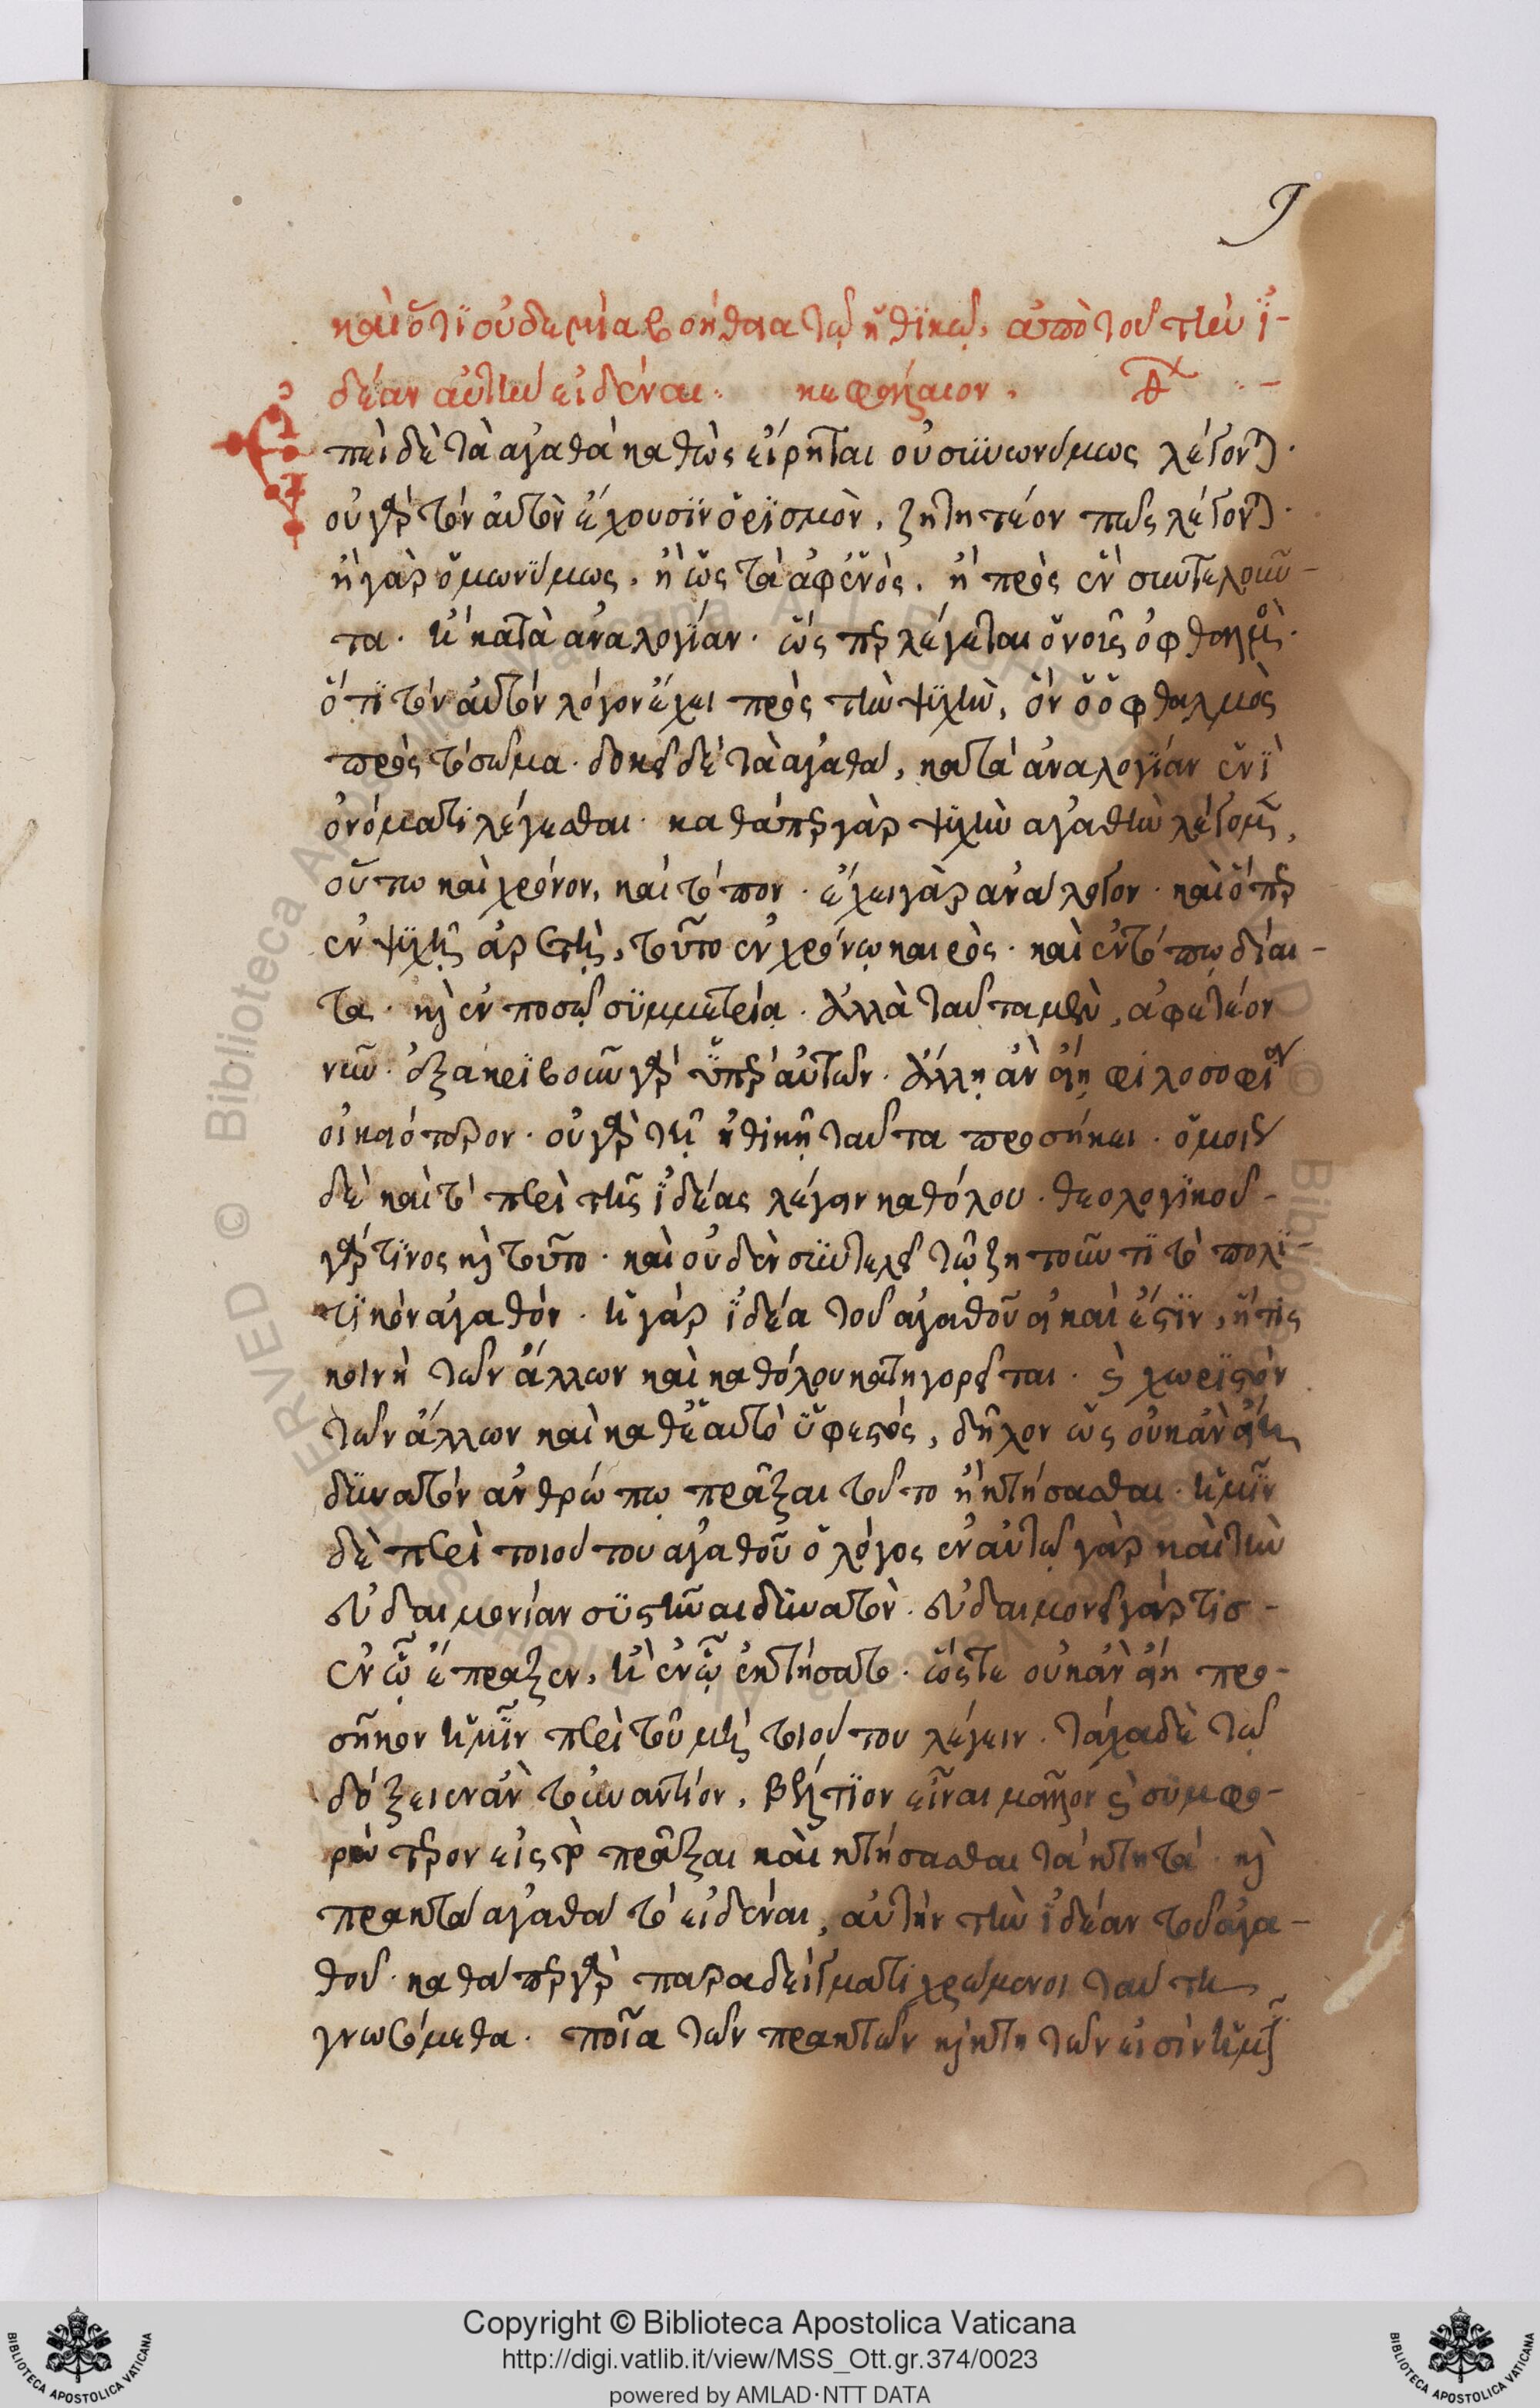 9
καὶ ὅτι οὐδεμία βοήθεια τῷ ἠθϊκῷ, ἀπὸ τοῦ τὴν ἰ-
δέαν αὐτὴν εἰδέναι. κεφάλαιον.
Ἐπεὶ δὲ τὰ ἀγαθὰ καθὼς εἴρηται οὐ συνωνύμως λέγονται.
οὐ γὰρ τὸν αὐτὸν ἔχουσιν ὁρισμὸν, ζητητέον πῶς λέγονται.
ἢ γὰρ ὁμωνύμως, ἢ ὡς τὰ ἀφ' ἑνὸς, ἢ πρὸς ἓν συντελοῦν-
τα. ἢ κατὰ ἀναλογίαν. ὥσπερ λέγεται ὁ νοῦς ὀφθαλμὸς.
ὅτι τὸν αὐτὸν λόγον ἔχει πρὸς τὴν ψυχὴν, ὃν ὁ ὀφθαλμὸς
πρὸς τὸ σῶμα. δοκεῖ δὲ τὰ ἀγαθὰ, κατὰ ἀναλογίαν ἑνὶ
ὀνόματι λέγεσθαι. καθάπερ γὰρ ψυχὴν ἀγαθὴν λέγομεν,
οὕτω καὶ χρόνον, καὶ τόπον. ἔχει γὰρ ἀνάλογον. καὶ ὅπερ
ἐν ψυχῇ ἀρετὴ, τοῦτο ἐν χρόνῳ καιρὸς. καὶ ἐν τόπῳ δίαι-
τα. καὶ ἐν ποσῷ συμμετρία. ἀλλὰ ταῦτα μὲν, ἀφετέον
νῦν. ἐξακριβοῦν γὰρ ὑπὲρ αὐτῶν. ἄλλῃ ἂν εἴη φιλοσοφίᾳ
οἰκειότερον. οὐ γὰρ τῇ ἠθικῇ ταῦτα προσήκει. ὁμοίως
δὲ καὶ τὸ περὶ τῆς ἰδέας λέγειν καθόλου. θεολογικοῦ-
γάρ τινος καὶ τοῦτο. καὶ οὐδὲν συντελεῖ τῷ ζητοῦντι τὸ πολι-
τικὸν ἀγαθόν. ἡ γὰρ ἰδέα τοῦ ἀγαθοῦ εἰ καὶ ἔστιν, ἥτις
κοινὴ τῶν ἄλλων καὶ καθόλου κατηγορεῖται. καὶ χωριστὸν
τῶν ἄλλων καὶ καθ' ἑαυτὸ ὑφεστός, δῆλον ὡς οὐκ ἂν εἴη
δυνατὸν ἀνθρώπῳ πρᾶξαι τοῦτο ἢ κτήσασθαι. ἡμῖν
δὲ περὶ τοιούτου ἀγαθοῦ ὁ λόγος ἐν αὐτῷ γὰρ καὶ τὴν
εὐδαιμονίαν συστῆναι δυνατὸν. εὐδαιμονεῖ γάρ τις-
ἐν ᾧ ἔπραξεν, ἢ ἐν ᾧ ἐκτήσατο. ὥστε οὐκ ἂν εἴη προ-
σῆκον ἡμῖν περὶ τοῦ μὴ τοιούτου λέγειν. τάχα δὲ τῳ
δόξειεν ἂν τοὐναντίον, βέλτιον εἶναι μᾶλλον καὶ συμφο-
ρώτερον εἰς τὸ πρᾶξαι καὶ κτήσασθαι τὰ κτητὰ. καὶ
πρακτὰ ἀγαθὰ τὸ εἰδέναι, αὐτὴν τὴν ἰδέαν τοῦ ἀγα-
θοῦ. καθάπερ γὰρ παραδείγματι χρώμενοι ταύτῃ
γνωσόμεθα. ποῖα τῶν πρακτῶν καὶ κτητῶν εἰσὶν ἡμῖν
Copyright © Biblioteca Apostolica Vaticana
http://digi.vatlib.it/view/MSS_Ott.gr.374/0023
powered by AMLAD·NTT DATA